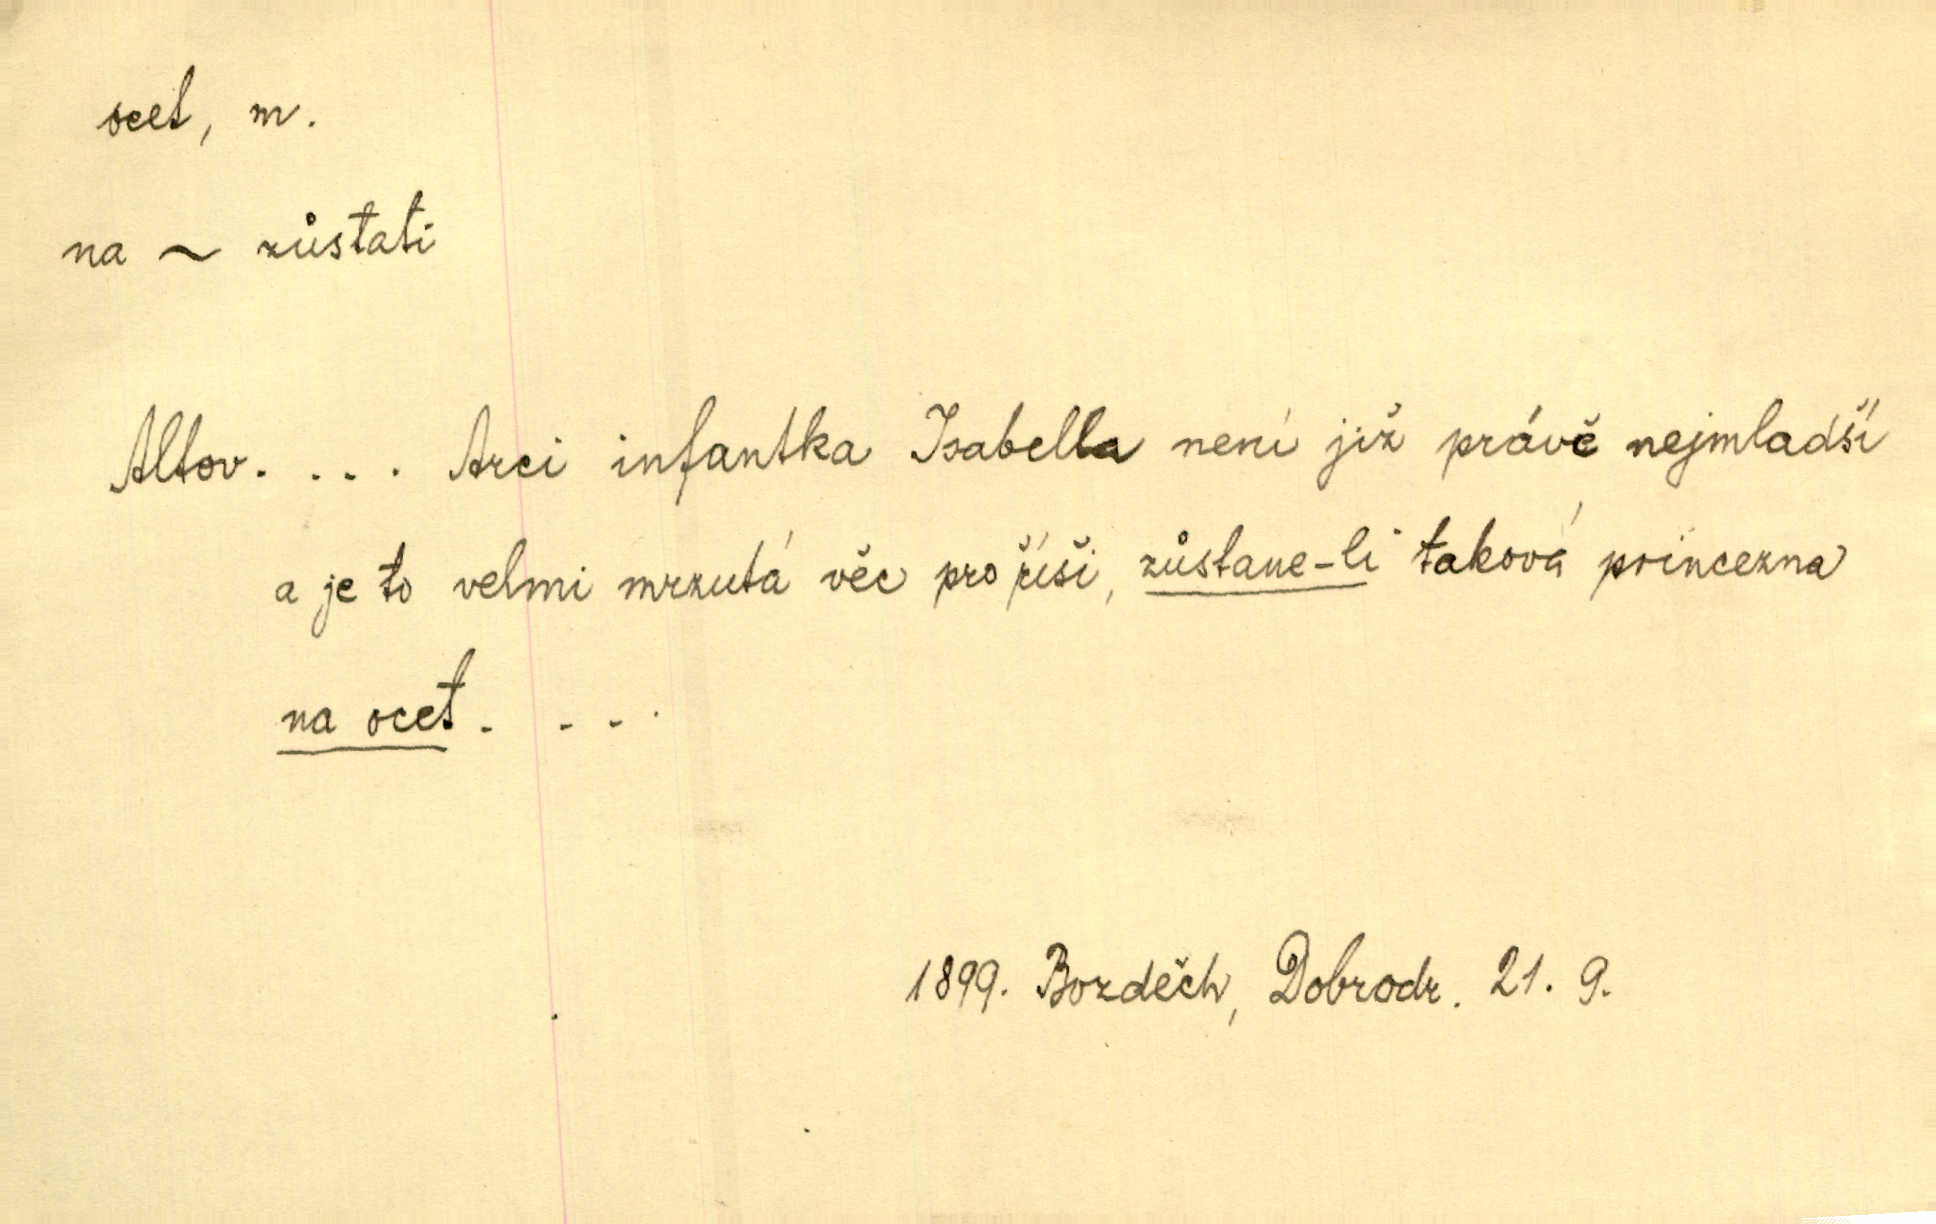 ocet, m.
na ~ zůstati
Altov. ... Arci infantka Isabella není již právě nejmladší
a je to velmi mrzutá věc pro říši, zůstane-li taková princezna
na ocet. ...
1899. Bozděch, Dobrodr. 21. 9.